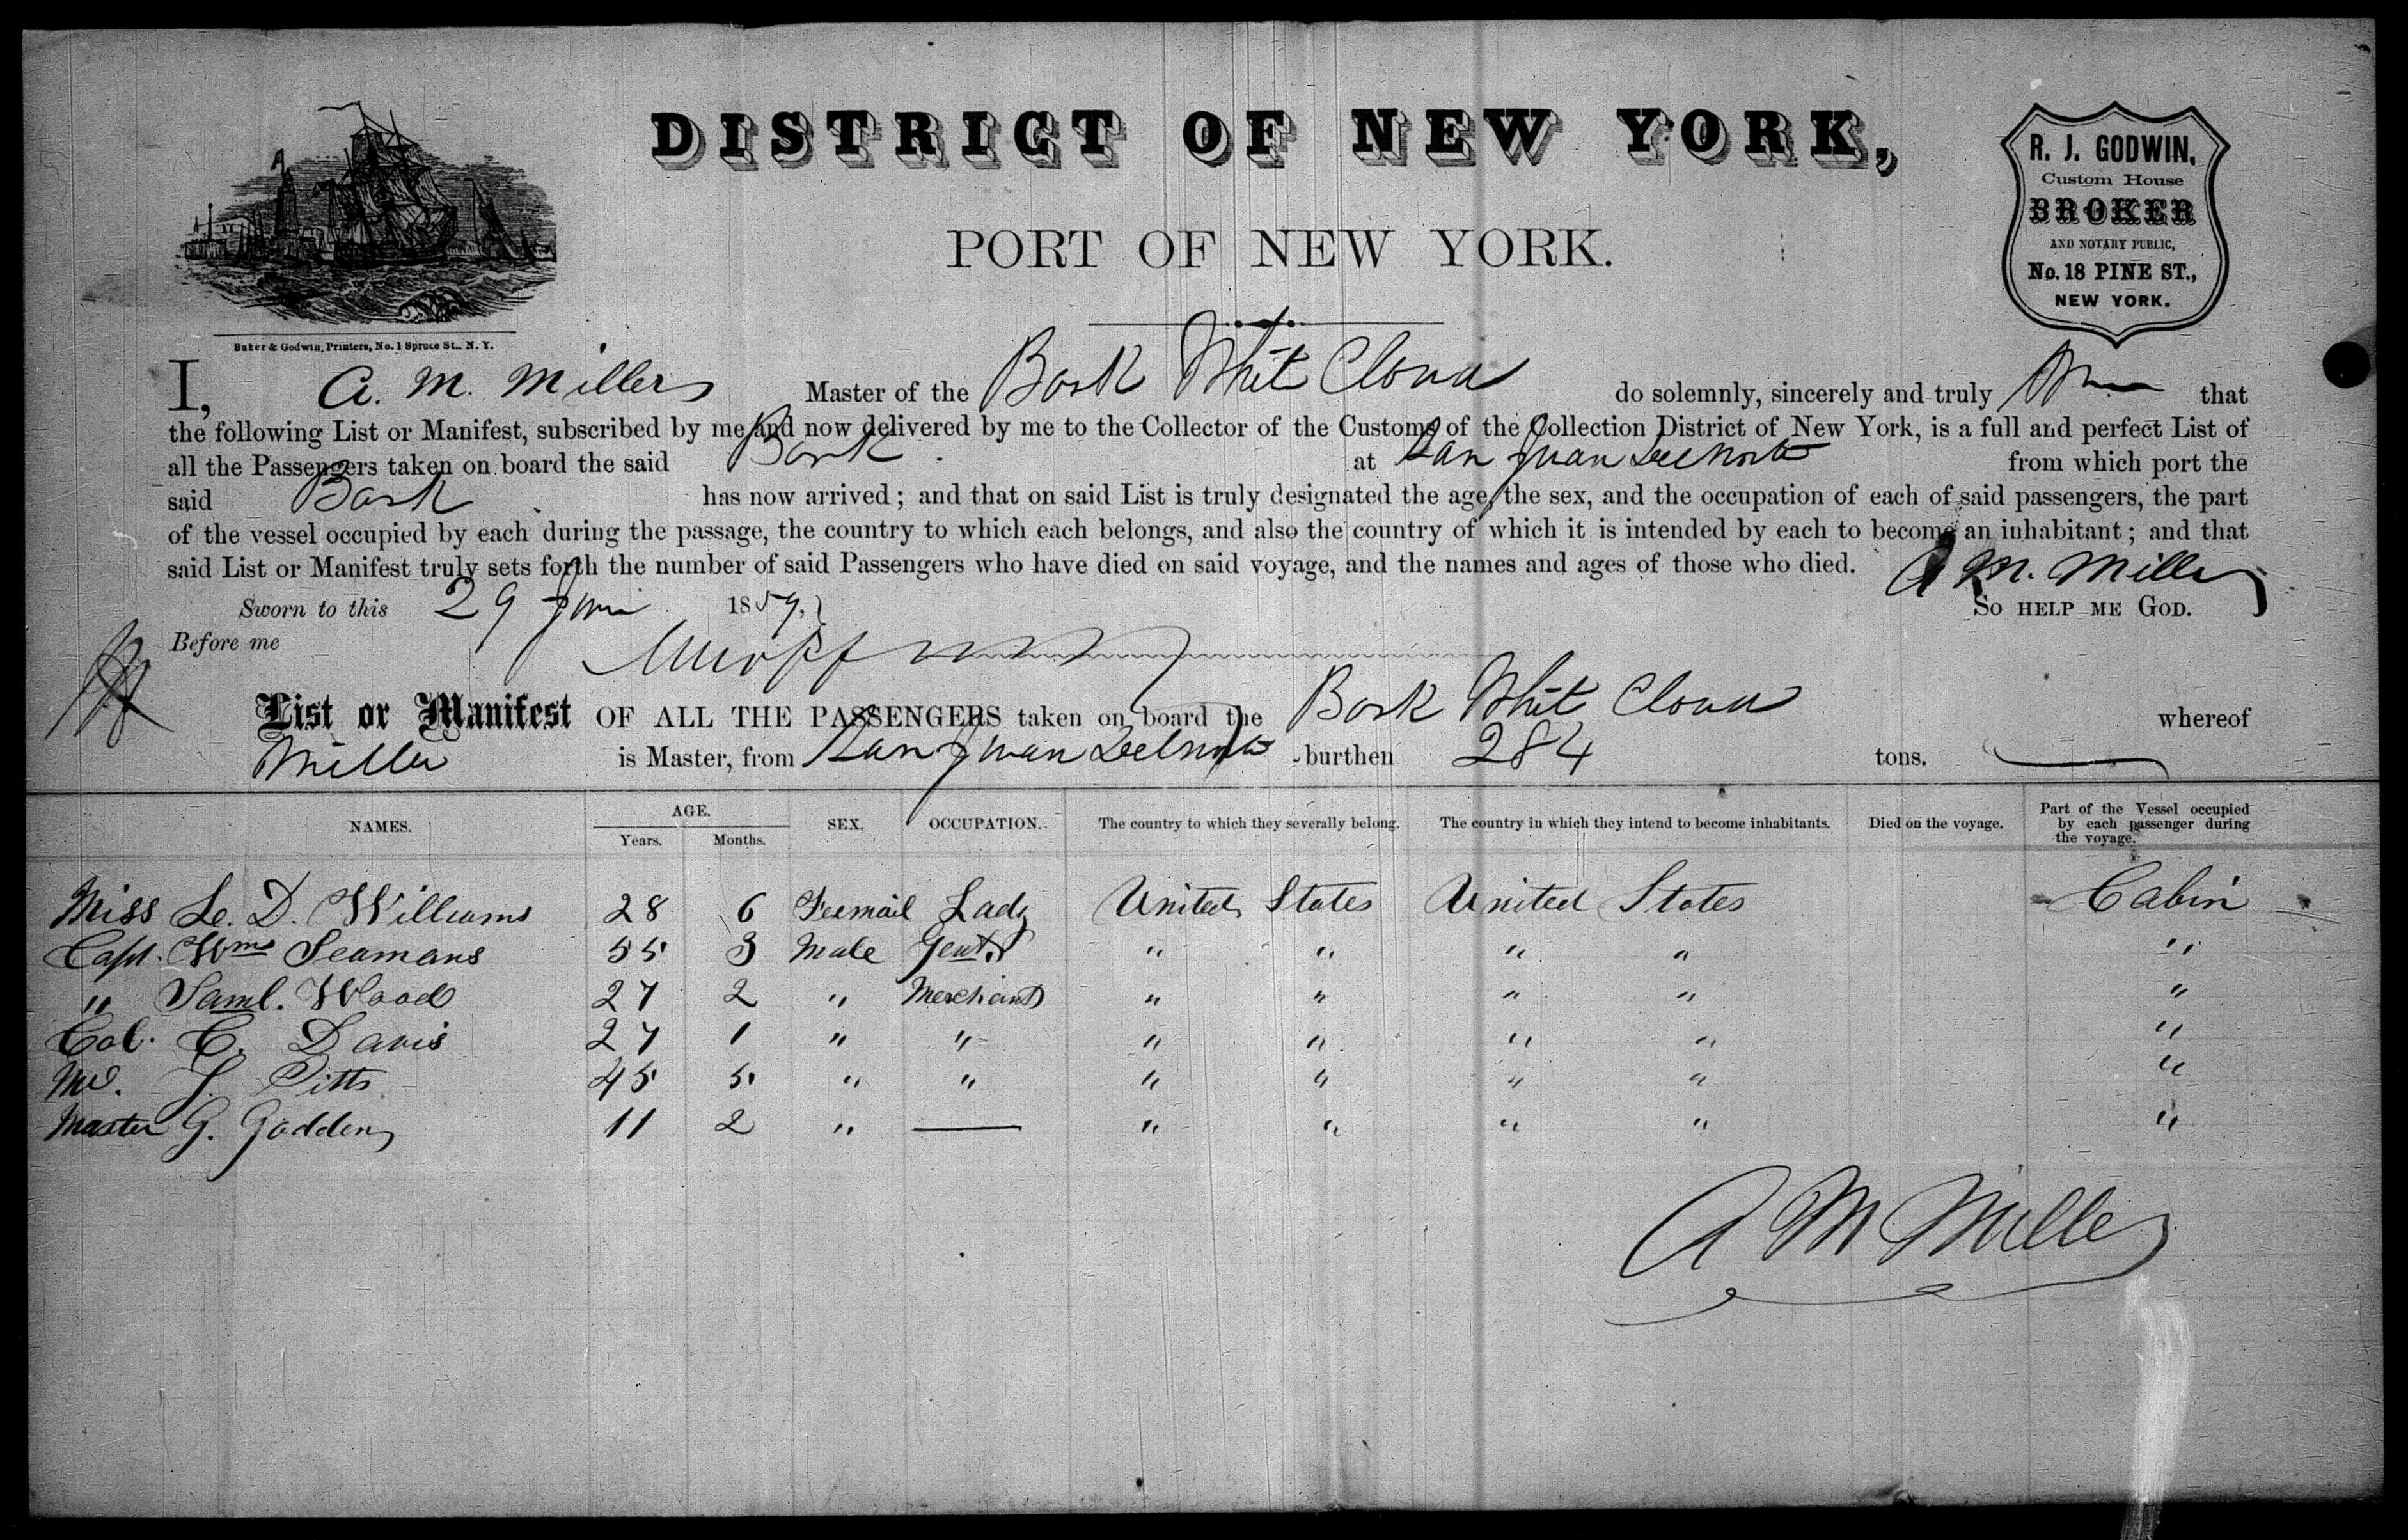 DISTRICT OF NEW YORK,
PORT OF NEW YORK.
R. J. GODWIN,
Custom House
BROKER
AND NOTARY PUBLIC,
No. 18 PINE ST.,
NEW YORK.
Baker & Godwin, Printers, No. 1 Spruce St., N. Y.
I, A. M. Miller Master of the Bark Whit Cloud do solemnly, sincerely and truly that
the following List or Manifest, subscribed by me and now delivered by me to the Collector of the Customs of the Collection District of New York, is a full and perfect List of
all the Passengers taken on board the said Bark at San Juan Delnorte from which port the
said Bark has now arrived; and that on said List is truly designated the age, the sex, and the occupation of each of said passengers, the part
of the vessel occupied by each during the passage, the country to which each belongs, and also the country of which it is intended by each to become an inhabitant; and that
said List or Manifest truly sets forth the number of said Passengers who have died on said voyage, and the names and ages of those who died. A M. Miller
Sworn to this 29 1859. SO HELP ME GOD.
Before me
List or Manifest OF ALL THE PASSENGERS taken on board the Bark Whit Cloud whereof
Miller is Master, from San Juan Delnorte burthen 284 tons.
NAMES. AGE. Years. Months. SEX. OCCUPATION. The country to which they severally belong. The country in which they intend to become inhabitants. Died on the voyage. Part of the Vessel occupied by each passenger during the voyage.
Miss Le. D. Williams 28 6 Feemail Lady United States United States Cabin
Capt. Wm Seamans 55 3 Male Gent. " " " " "
" Saml. Wood 27 2 " Merchant " " " " "
Col. C. Davis 27 1 " " " " " " "
Mr. Pitts 45 5 " " " " " " "
Master G. Godden 11 2 " — " " " " "
A M Miller